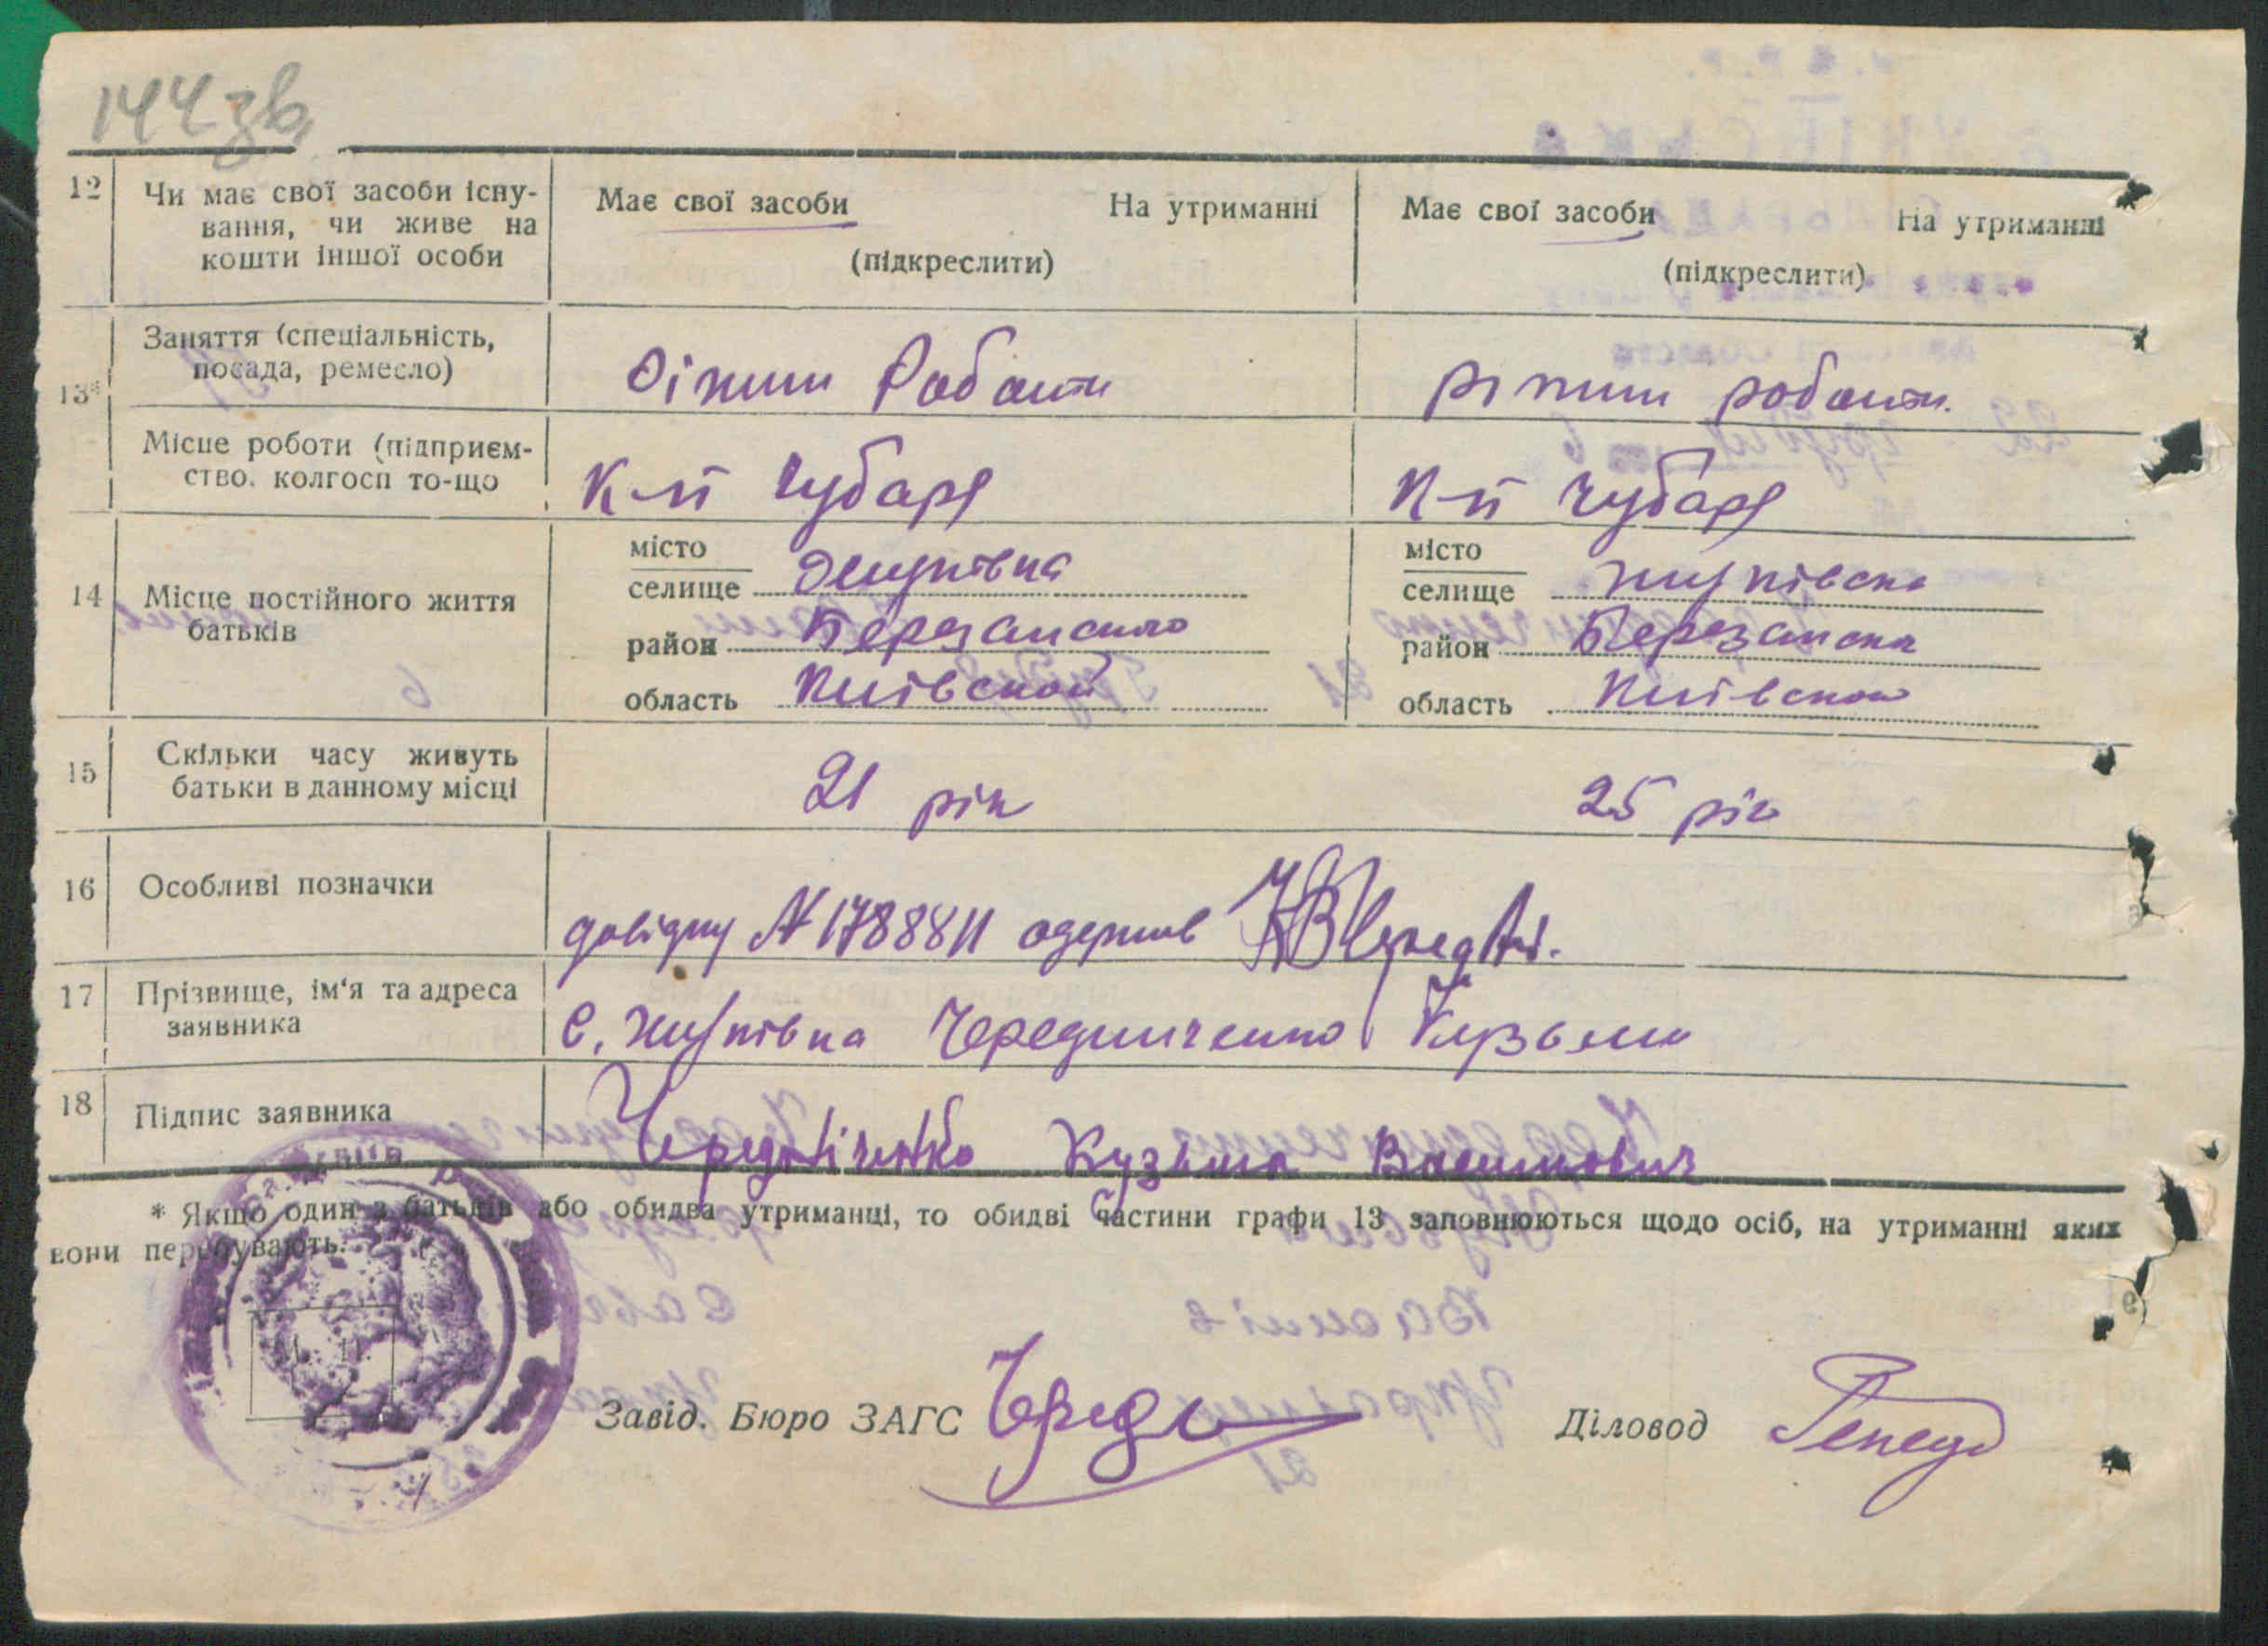 144 зв.
12 Чи має свої засоби існу-
вання, чи живе на
кошти іншої особи
Має свої засоби На утриманні
(підкреслити)
Має свої засоби На утриманні
(підкреслити)
13* Заняття (спеціальність,
посада, ремесло)
Ріжни Роботи
ріжни роботи.
Місце роботи (підприєм-
ство, колгосп то-що
К-п Чубаря
К-п Чубаря
14 Місце постійного життя
батьків
місто
селище Жуківка
район Березанского
область Київской
місто
селище Жуківска
район Березанска
область Київской
15 Скільки часу живуть
батьки в данному місці
21 рік
25 рік
16 Особливі позначки
довідку № 1788811 одержив
17 Прізвище, ім'я та адреса
заявника
С. Жуківка Чередниченко Кузьма
18 Підпис заявника
Чередніченко Кузьма
* Якщо один з батьків або обидва утриманці, то обидві частини графи 13 заповнюються щодо осіб, на утриманні яких
вони перебувають.
М. П.
Завід. Бюро ЗАГС
Діловод